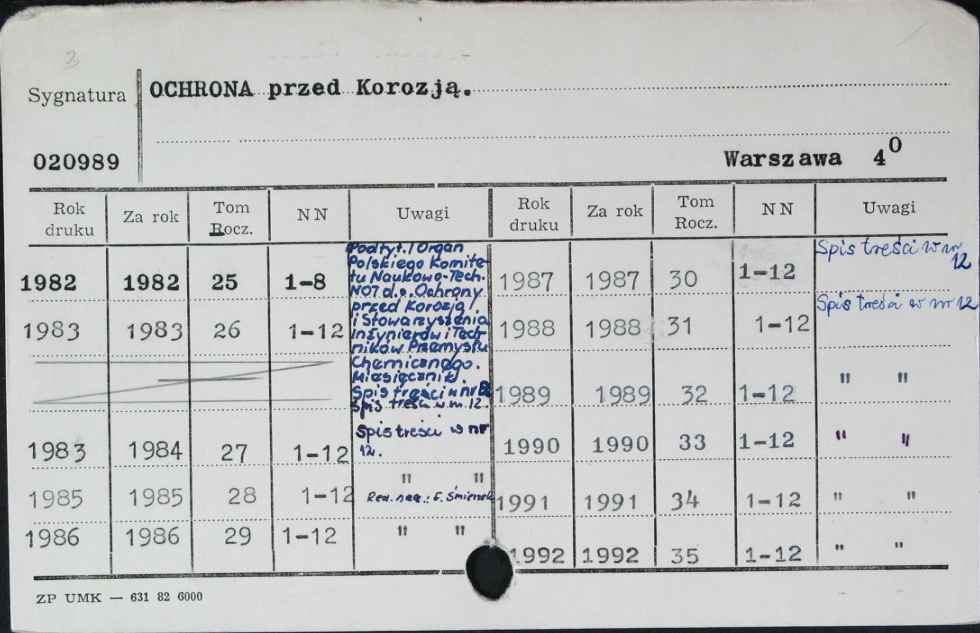 3
OCHRONA przed Korozją.
Sygnatura
020989
Warszawa 4⁰
Rok druku Za rok Tom Rocz. NN Uwagi Rok druku Za rok Tom Rocz. NN Uwagi
1982 1982 25 1-8
1983 1983 26 1-12
Podtyt./Organ
Polskiego Komite-
tu Naukowo-Tech.
NOT d.s. Ochrony
przed Korozją/
i Stowarzyszenia
Inżynierów i Tech-
ników Przemysłu
Chemicznego.
Miesięcznik.
Spis treści w nr 12
Spis treści w nr 12.
1983 1984 27 1-12 Spis treści w nr
12.
1985 1985 28 1-12 " "
Red. nacz.: E. Śmieszek
1986 1986 29 1-12 " "
1987 1987 30 1-12 Spis treści w nr
12
1988 1988 31 1-12 Spis treści w nr 12
1989 1989 32 1-12 " "
1990 1990 33 1-12 " "
1991 1991 34 1-12 " "
1992 1992 35 1-12 " "
ZP UMK — 631 82 6000